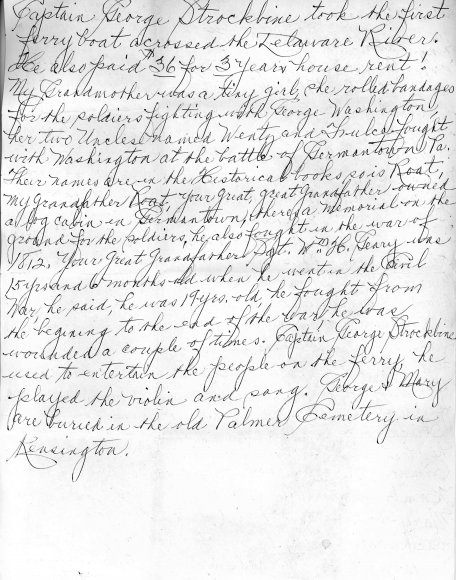 Captain George Strockbine took the first
ferry boat acrossed the Delaware River.
He also paid $36 for 3 years house rent!
My Grandmother was a tiny girl, she rolled bandages
for the soldiers fighting with George Washington,
her two Uncles named Wentz and Fulca, fought
with Washington at the battle of Germantown Pa.
Their names are in the Historical books so is Roat,
my Grandfather Roat, Your Great, great Grandfather owned
a log cabin in Germantown, theres a Memorial on the
ground for the soldiers, he also fought in the war of
1812. Your Great Grandfather Sgt. Wm H. Geary was
15 yrs and 6 months old when he went in the Civil
War, he said, he was 19 yrs. old, he fought from
the begining to the end of the war he was
wounded a couple of times. Captain George Strockbine
used to entertain the people on the ferry, he
played the violin and sang. George & Mary
are buried in the old Palmer Cemetery in
Kensington.